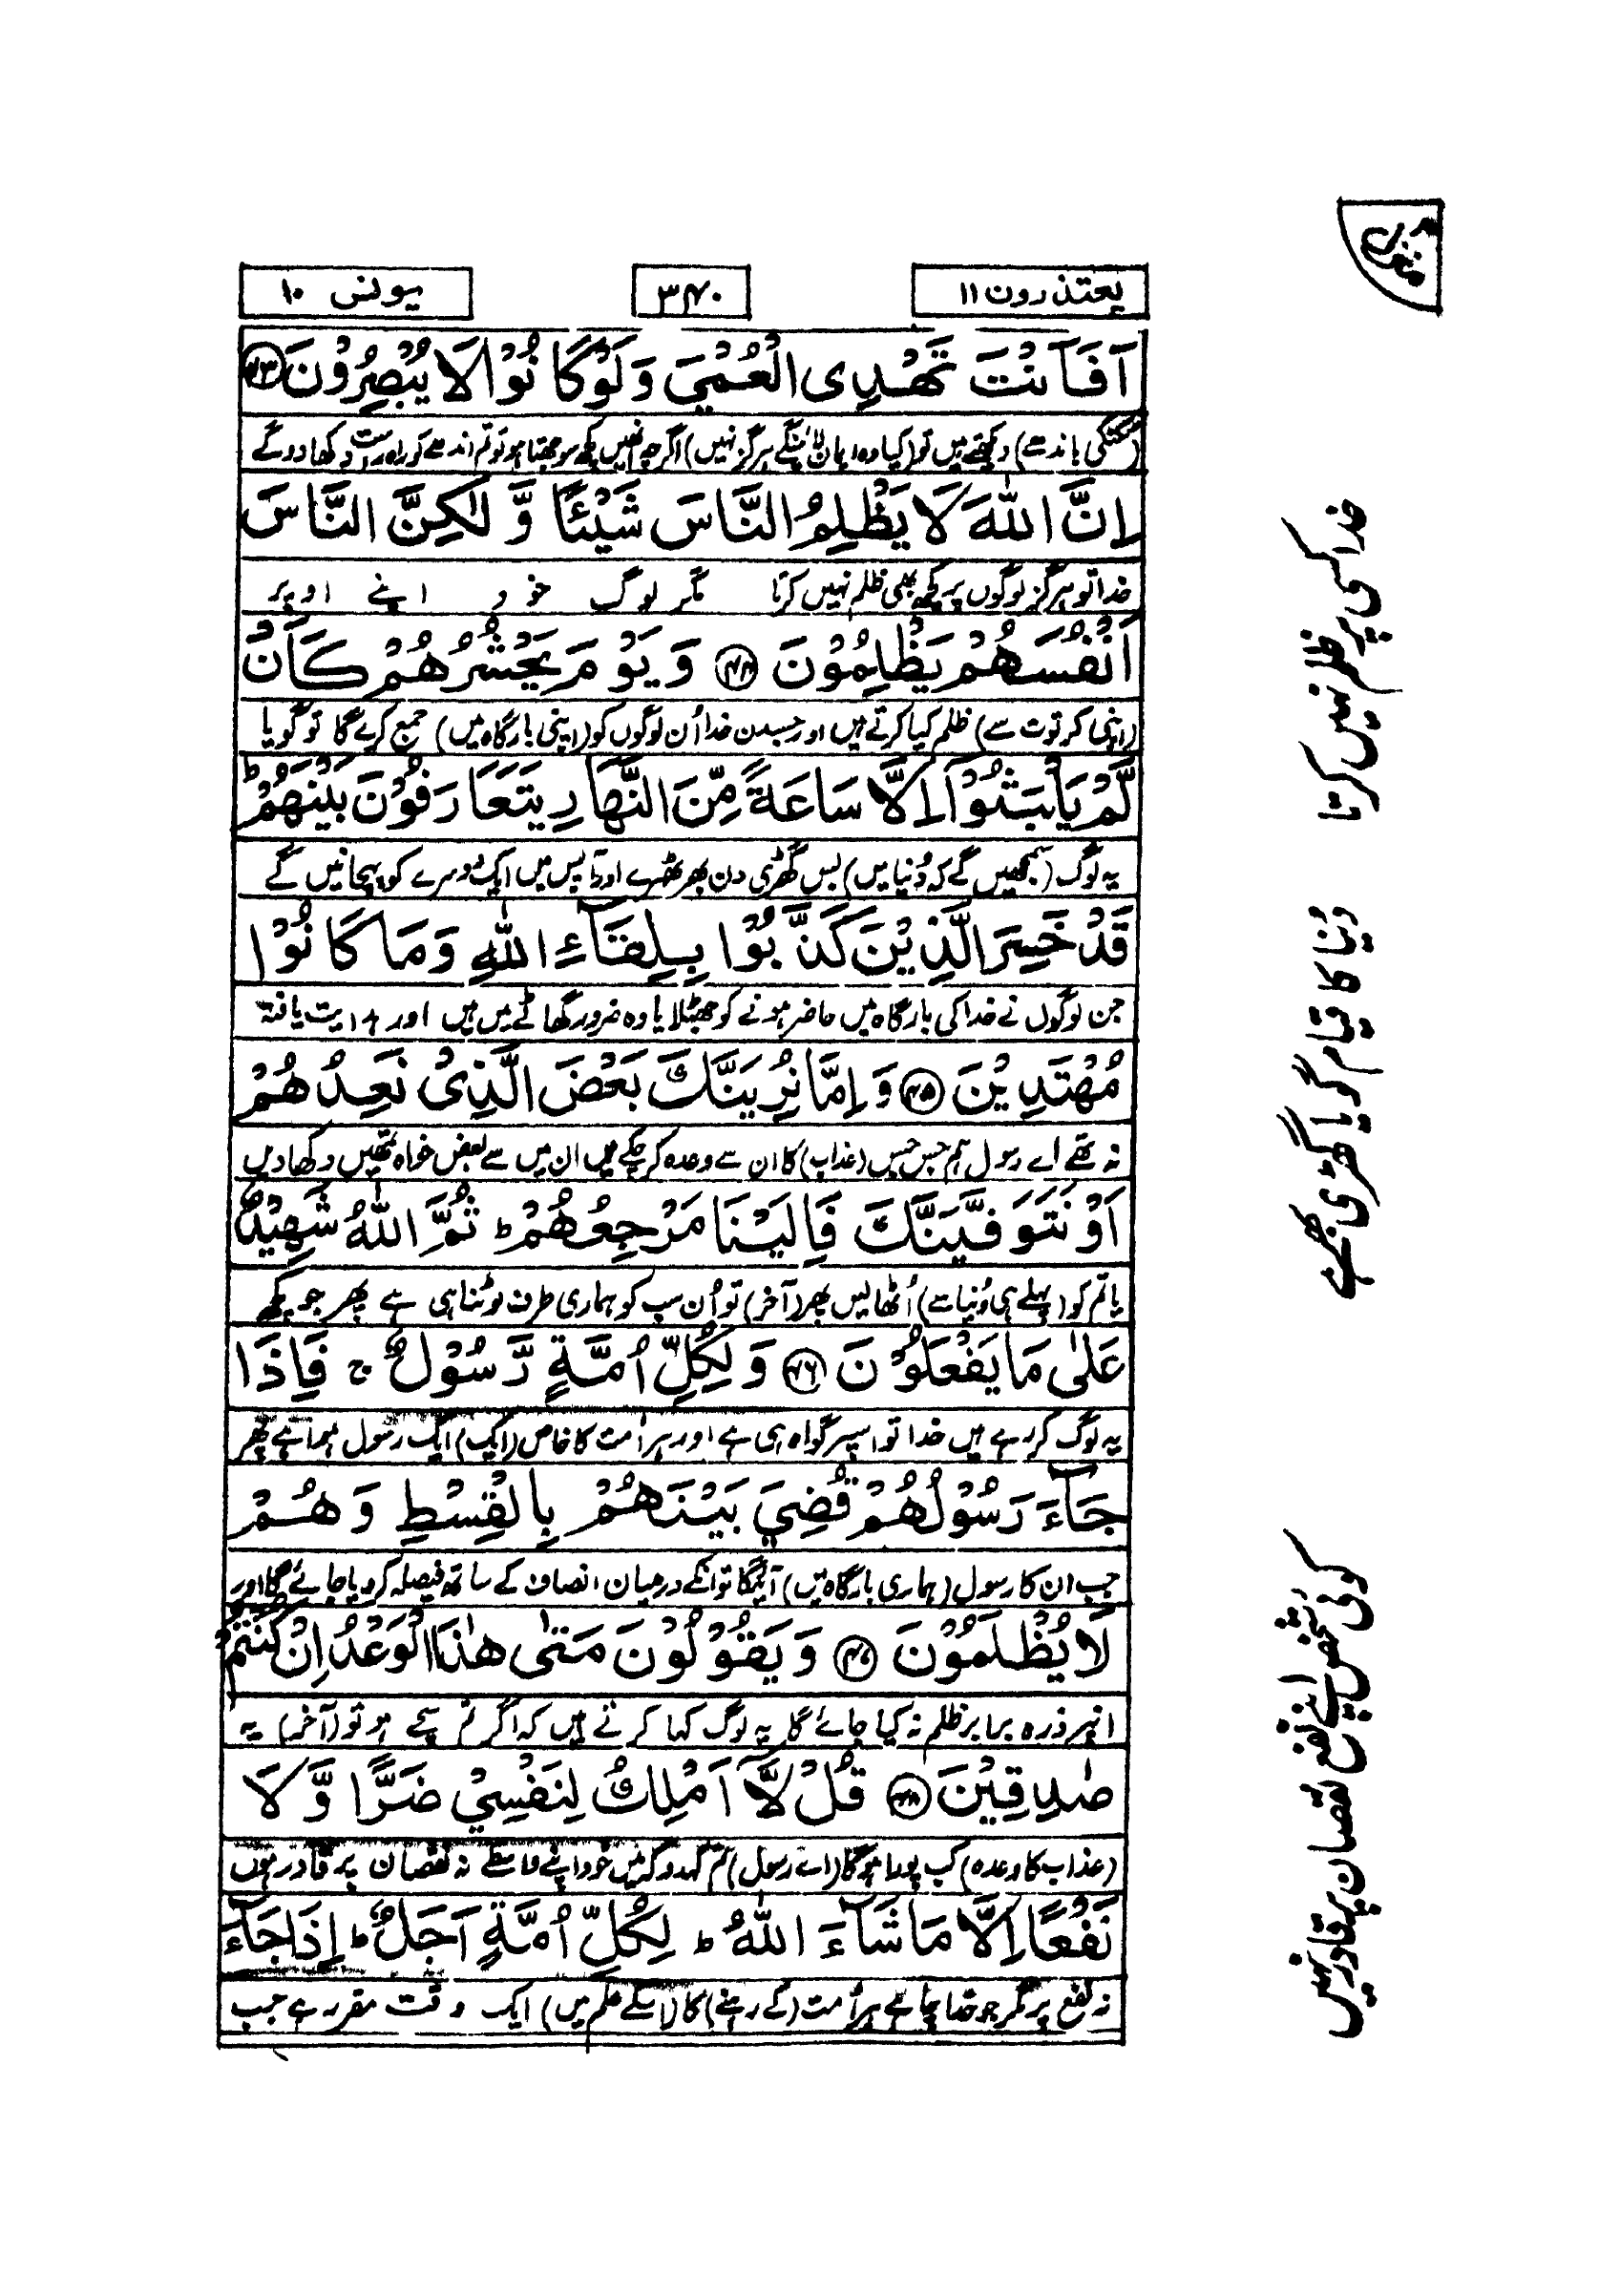 یعتذرون ۱۱
۳۴۰
یونس ۱۰
اَفَاَنْتَ تَهْدِی الْعُمْیَ وَلَوْ كَانُوْا لَا یُبْصِرُوْنَ ﴿۴۳﴾
(ٹکٹکی باندھے) دیکھتے ہیں تو (کیا وہ ایمان لائینگے ہرگز نہیں) اگرچہ انھیں کچھ سوجھتا ہو تو تم اندھے کو راہ راست دکھا دوگے
اِنَّ اللّٰهَ لَا یَظْلِمُ النَّاسَ شَیْئًا وَّ لٰكِنَّ النَّاسَ
خدا تو ہرگز لوگوں پر کچھ بھی ظلم نہیں کرتا مگر لوگ خود اپنے اوپر
اَنْفُسَهُمْ یَظْلِمُوْنَ ﴿۴۴﴾ وَ یَوْمَ یَحْشُرُهُمْ كَاَنْ
(اپنی کرتوت سے) ظلم کیا کرتے ہیں اور جسدن خدا اُن لوگوں کو (اپنی بارگاہ میں) جمع کرے گا تو گویا
لَّمْ یَلْبَثُوْۤا اِلَّا سَاعَةً مِّنَ النَّهَارِ یَتَعَارَفُوْنَ بَیْنَهُمْ ؕ
یہ لوگ (سمجھیں گے کہ دُنیا میں) بس گھڑی دن بھر ٹھہرے اور آپس میں ایک دوسرے کو پہچانیں گے
قَدْ خَسِرَ الَّذِیْنَ كَذَّبُوْا بِلِقَآءِ اللّٰهِ وَمَا كَانُوْا
جن لوگوں نے خدا کی بارگاہ میں حاضر ہونے کو جھٹلایا وہ ضرور گھاٹے میں ہیں اور ہدایت یافتہ
مُهْتَدِیْنَ ﴿۴۵﴾ وَ اِمَّا نُرِیَنَّكَ بَعْضَ الَّذِیْ نَعِدُهُمْ
نہ تھے اے رسول ہم جس جس (عذاب) کا ان سے وعدہ کر چکے ہیں ان میں سے بعض خواہ تمھیں دکھا دیں
اَوْ نَتَوَفَّیَنَّكَ فَاِلَیْنَا مَرْجِعُهُمْ ؕ ثُمَّ اللّٰهُ شَهِیْدٌ
یا تم کو (پہلے ہی دُنیا سے) اُٹھا لیں پھر (آخر) تو اُن سب کو ہماری طرف لوٹنا ہی ہے پھر جو کچھ
عَلٰی مَا یَفْعَلُوْنَ ﴿۴۶﴾ وَ لِكُلِّ اُمَّةٍ رَّسُوْلٌ ۚ فَاِذَا
یہ لوگ کر رہے ہیں خدا تو اسپر گواہ ہی ہے اور ہر اُمت کا خاص (ایک) ایک رسول ہوا ہے پھر
جَآءَ رَسُوْلُهُمْ قُضِیَ بَیْنَهُمْ بِالْقِسْطِ وَ هُمْ
جب ان کا رسول (ہماری بارگاہ میں) آئیگا تو انکے درمیان انصاف کے ساتھ فیصلہ کر دیا جائے گا اور
لَا یُظْلَمُوْنَ ﴿۴۷﴾ وَ یَقُوْلُوْنَ مَتٰی هٰذَا الْوَعْدُ اِنْ كُنْتُمْ
انپر ذرہ برابر ظلم نہ کیا جائے گا یہ لوگ کہا کرتے ہیں کہ اگر تم سچے ہو تو (آخر) یہ
صٰدِقِیْنَ ﴿۴۸﴾ قُلْ لَّاۤ اَمْلِكُ لِنَفْسِیْ ضَرًّا وَّ لَا
(عذاب کا وعدہ) کب پورا ہوگا (اے رسول) تم کہدو کہ میں خود اپنے واسطے نہ نقصان پر قادر ہوں
نَفْعًا اِلَّا مَا شَآءَ اللّٰهُ ؕ لِكُلِّ اُمَّةٍ اَجَلٌ ؕ اِذَا جَآءَ
نہ نفع پر مگر جو خدا چاہے ہر اُمت (کے رہنے) کا (اسکے علم میں) ایک وقت مقرر ہے جب
خدا کسی پر ظلم نہیں کرتا
دُنیا کا قیام گویا گھڑی بھر ہے
کوئی شخص اپنے نفع نقصان پر قادر نہیں